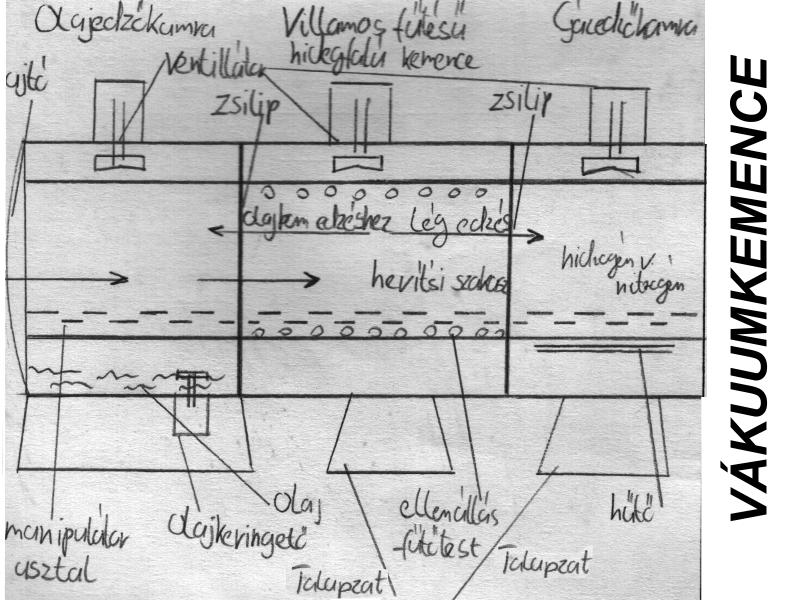 Olajedzőkamra
Villamos fűtésű
hidegfalú kemence
Gázedzőkamra
ajtó
Ventillátor
zsilip
zsilip
olajban edzéshez
lég edzés
hevítési szakasz
hidrogén v.
nitrogén
manipulátor
asztal
olajkeringető
olaj
Talapzat
ellenállás
fűtőtest
Talapzat
hűtő
VÁKUUMKEMENCE